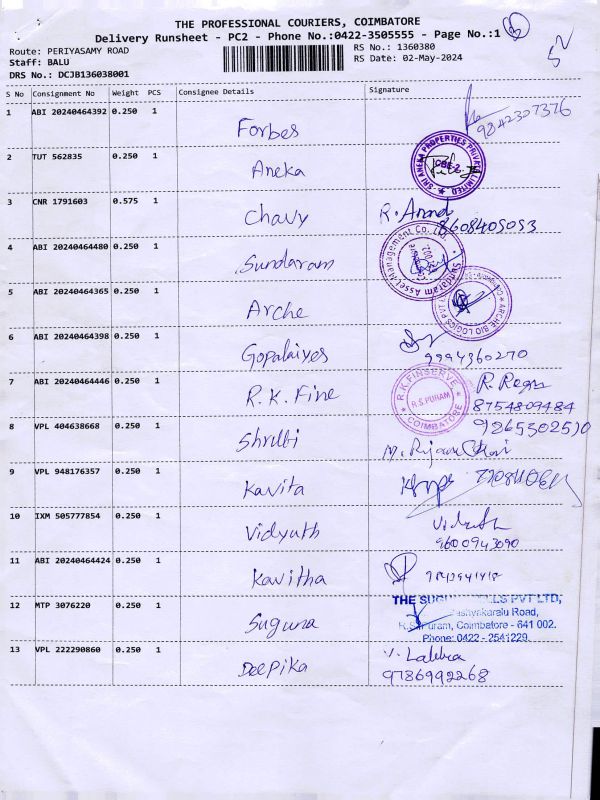 THE PROFESSIONAL COURIERS, COIMBATORE
Delivery Runsheet - PC2 - Phone No.:0422-3505555 - Page No.:1
Route: PERIYASAMY ROAD RS No.: 1360380
Staff: BALU RS Date: 02-May-2024
DRS No.: DCJB136038001
S No Consignment No Weight PCS Consignee Details Signature
1 ABI 20240464392 0.250 1 Forbes 9842307376
2 TUT 562835 0.250 1 Aneka
SRI ANEKA PROPERTIES PRIVATE LIMITED CBE-2
3 CNR 1791603 0.575 1 Chavy R. Anand
8608405053
4 ABI 20240464480 0.250 1 Sundaram
Sundaram Asset Management Co. Ltd.
5 ABI 20240464365 0.250 1 Arche
ARCHE BIO LOGICS PVT
6 ABI 20240464398 0.250 1 Gopalaiyes
9994360270
7 ABI 20240464446 0.250 1 R.K. Fine
R.K.FINSERVE R.S.PURAM COIMBATORE
8754809484
8 VPL 404638668 0.250 1 Shrutti 9265302510
9 VPL 948176357 0.250 1 Kavita
10 IXM 505777854 0.250 1 Vidyuth
9600943090
11 ABI 20240464424 0.250 1 Kavitha
12 MTP 3076220 0.250 1 Suguna
THE PVT LTD,
Road,
Coimbatore - 641 002.
Phone: 0422 - 2541229.
13 VPL 222290860 0.250 1 Deepika
9786992268